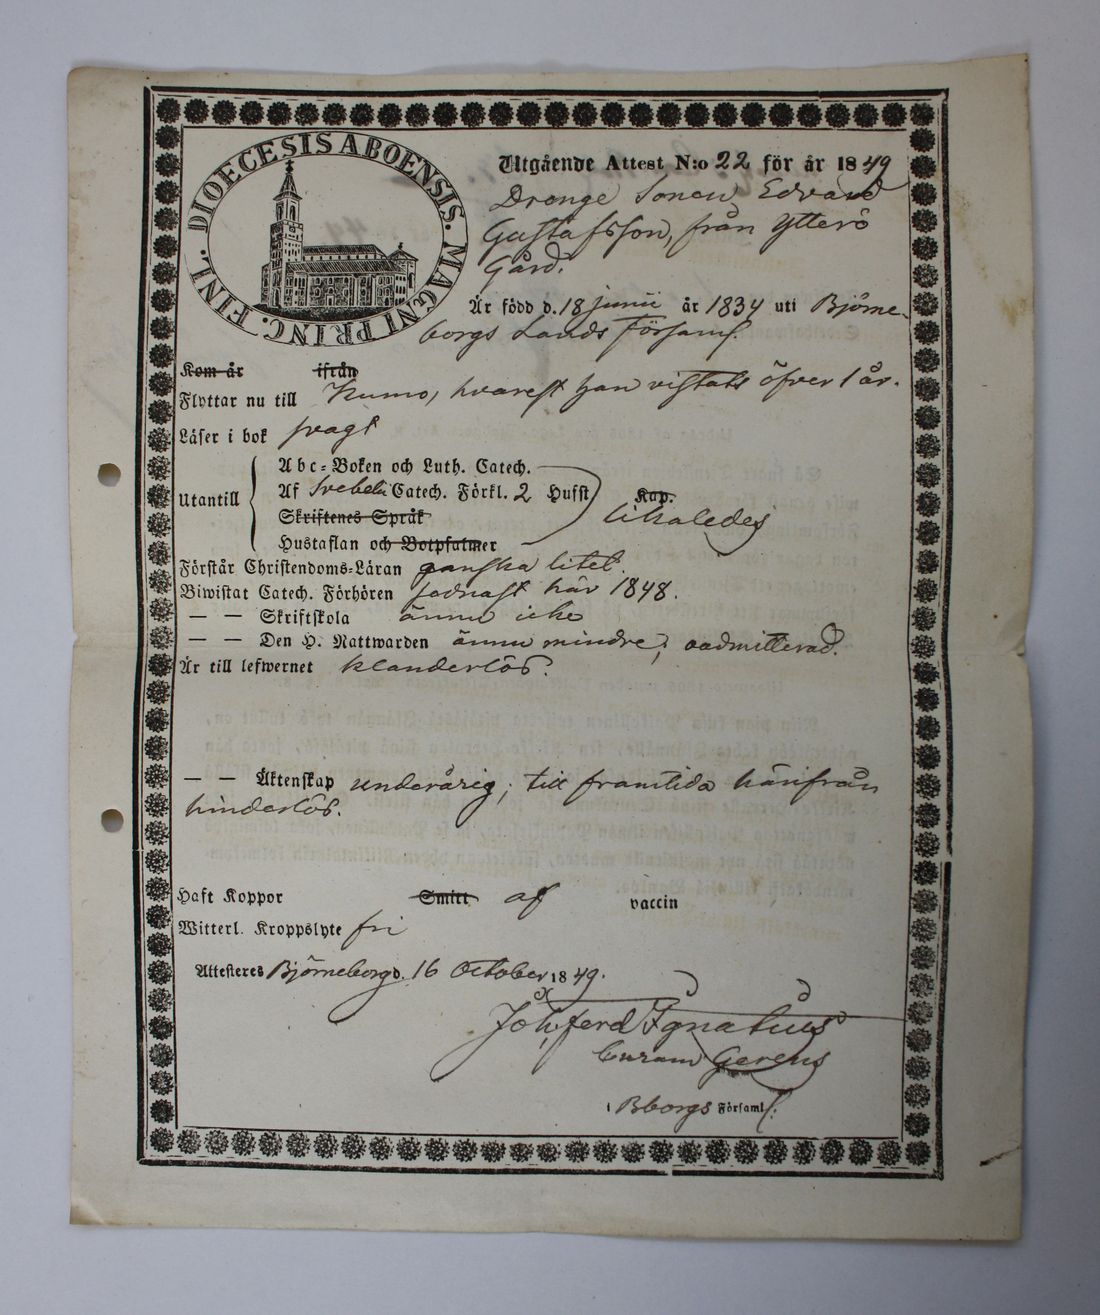 DIOECESIS ABOENSIS. MAGNI PRINC. FINL.
Utgående Attest N:o 22 för år 1849
Drenge Sonen Edvard
Gustafsson, från Ytterö
Gård.
Är född d. 18 junii år 1834 uti Björne-
borgs Lands Församl.
Kom år ifrån
Flyttar nu till Kumo, hvarest han vistats öfver 1 år.
Läser i bok svagt
Utantill
Abc-Boken och Luth. Catech.
Af Svebeli Catech. Förkl. 2 Husst Kap.
likaledes
Skriftenes Språk
Hustaflan och Botpsalmer
Förstår Christendoms-Läran ganska litet.
Biwistat Catech. Förhören sednast här 1848.
— — Skriftskola ännu icke
— — Den H. Nattwarden ännu mindre; oadmitterad.
Är till lefwernet klanderlös.
— — Äktenskap underårig; till framtida härifrån
hinderlös.
Haft Koppor Smitt af vaccin
Witterl. Kroppslyte fri
Attesteres Björneborg d. 16 October 1849.
Joh. Ferd Ignatius
Curam Gerens
i Bborgs Församl.